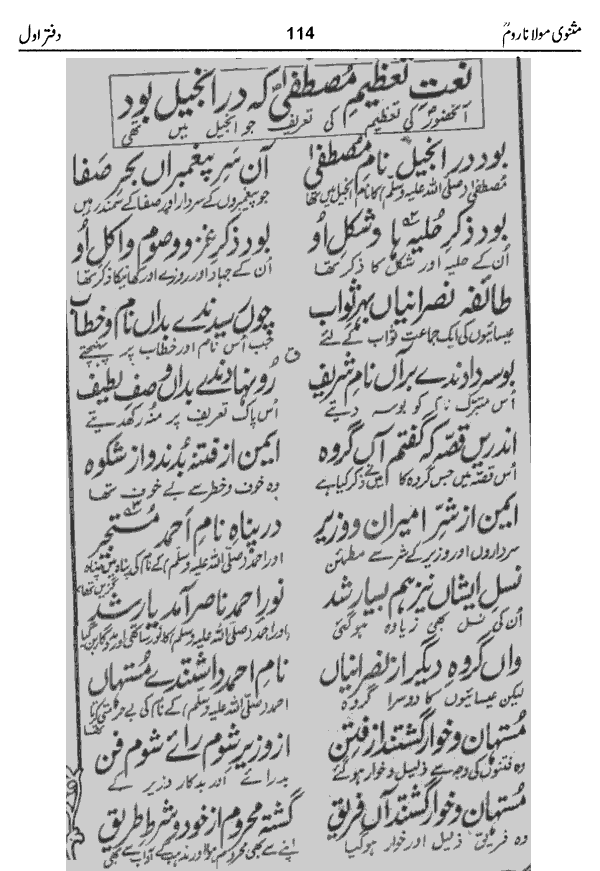 مثنوی مولانا رومؒ 114 دفتر اول
نعت تعظیم مصطفیٰ کہ در انجیل بود
آنحضورؐ کی تعظیم کی تعریف جو انجیل میں تھی
بود در انجیل نام مصطفیٰ آن سر پیغمبراں بحر صفا
مصطفیٰ (صلی اللہ علیہ وسلم) کا نام انجیل میں تھا جو پیغمبروں کے سردار اور صفا کے سمندر ہیں
بود ذکر حلیہ ہا و شکل اُو بود ذکر غزو و صوم و اکل اُو
اُن کے حلیہ اور شکل کا ذکر تھا اُن کے جہاد اور روزے اور کھانیکا ذکر تھا
طائفہ نصرانیاں بہر ثواب چوں رسیدندے بداں نام و خطاب
عیسائیوں کی ایک جماعت ثواب کے لئے جب اُس نام اور خطاب پر پہنچتے
بوسہ دادندے برآں نام شریف رُو نہادندے بداں وصف لطیف
اُس متبرک نام کو بوسہ دیتے اُس پاک تعریف پر منہ رکھدیتے
اندریں قصہ کہ گفتم آں گروہ ایمن از فتنہ بُدند و از شکوہ
اُس قصہ میں جس گروہ کا میں نے ذکر کیا ہے وہ خوف و خطر سے بے خوف تھا
ایمن از شرِ امیران و وزیر در پناہ نامِ احمد مُستجیر
سرداروں اور وزیر کے شر سے مطمئن اور احمد (صلی اللہ علیہ وسلم) کے نام کی پناہ میں پناہ گزیں تھا
نسل ایشاں نیز ہم بسیار شد نورِ احمد ناصر آمد یار شد
اُن کی نسل بھی زیادہ ہو گئی اور احمد (صلی اللہ علیہ وسلم) کا نور ساتھی اور مددگار بن گیا
واں گروہِ دیگر از نصرانیاں نامِ احمد داشتندے مُستہاں
لیکن عیسائیوں کا دوسرا گروہ احمد (صلی اللہ علیہ وسلم) کے نام کی بے حرمتی کرتا تھا
مُستہان و خوار گشتند از فتن از وزیر شوم رائے شوم فن
وہ فتنوں کی وجہ سے ذلیل و خوار ہو گئے بد رائے اور بدکار وزیر کے
مُستہان و خوار گشتند آں فریق گشتہ محروم از خود و شرطِ طریق
وہ فریق ذلیل اور خوار ہو گیا اپنے سے بھی محروم ہوا اور مذہب کے آداب سے بھی